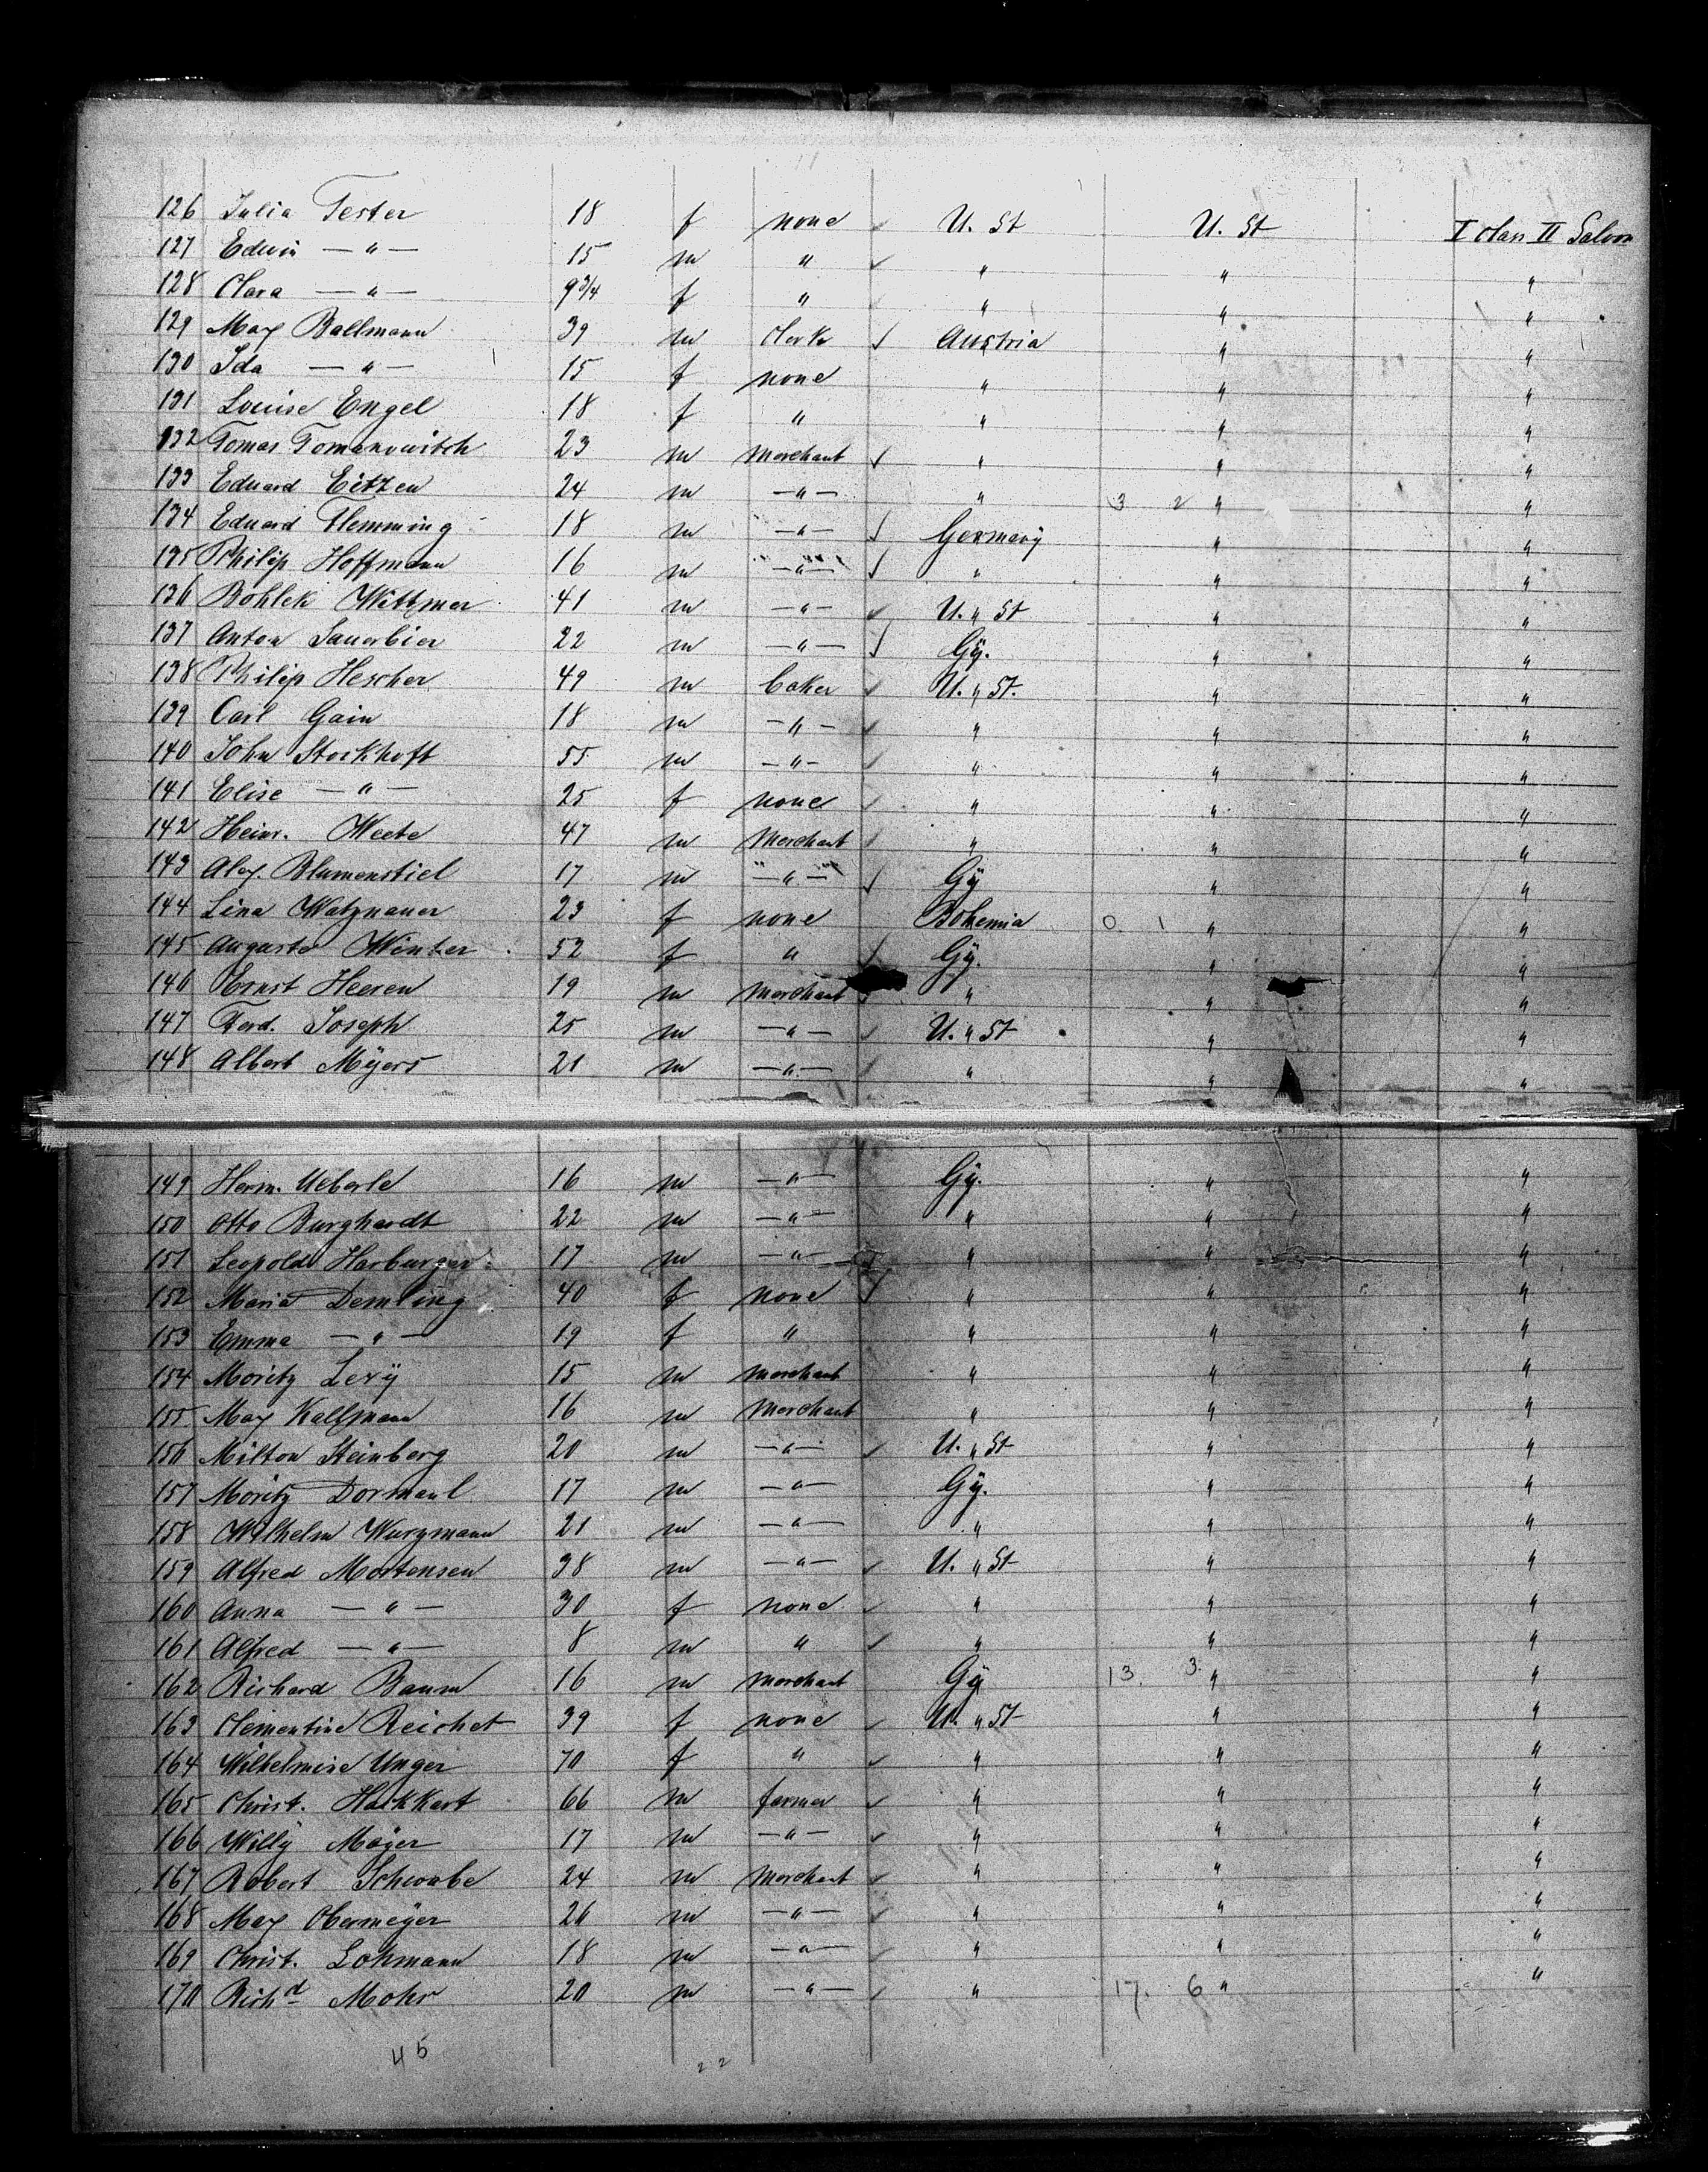 126 Julia Tester 18 f none ✓ U. St U. St I class II Saloon
127 Edwin — " — 15 m " ✓ " " "
128 Clara — " — 9 3/4 f " ✓ " " "
129 Max Ballmann 39 m clerk ✓ Austria " "
130 Ida — " — 15 f none " " "
131 Louise Engel 18 f " " " "
132 Tomas Tomanovitch 23 m Merchant ✓ " " "
133 Eduard Eitzen 24 m — " — " 3 2 " "
134 Eduard Flemming 18 m — " — ✓ Germany " "
135 Philip Hoffmann 16 m — " — ✓ " " "
136 Bohlek Wittmer 41 m — " — ✓ U. " St " "
137 Anton Sauerbier 22 m — " — ✓ Gÿ. " "
138 Philip Hescher 49 m baker ✓ U. " St. " "
139 Carl Gain 18 m — " — ✓ " " "
140 John Stockhoft 55 m — " — ✓ " " "
141 Elise — " — 25 f none ✓ " " "
142 Heinr. Weete 47 m Merchant ✓ " " "
143 Alex. Blumenstiel 17 m — " — ✓ Gÿ " "
144 Lina Watznauer 23 f none Bohemia 0 1 " "
145 Auguste Winter 52 f " ✓ Gÿ. " "
146 Ernst Heeren 19 m Merchant ✓ " " "
147 Ferd. Joseph 25 m — " — ✓ U. " St " "
148 Albert Mÿers 21 m — " — ✓ " " "
149 Herm. Ueberle 16 m — " — Gÿ. " "
150 Otto Burghardt 22 m — " — " " "
151 Leopold Harburger 17 m — " — " " "
152 Maria Demling 40 f none ✓ " " "
153 Emma — " — 19 f " " " "
154 Moritz Levÿ 15 m Merchant " " "
155 Max Kallmann 16 m Merchant " " "
156 Milton Steinberg 20 m — " — ✓ U. " St " "
157 Moritz Dormaul 17 m — " — Gÿ. " "
158 Wilhelm Wurzmann 21 m — " — " " "
159 Alfred Mortensen 38 m — " — ✓ U. " St " "
160 Anna — " — 30 f none ✓ " " "
161 Alfred — " — 8 m " ✓ " " "
162 Richard Baum 16 m Merchant Gÿ 13. 3. " "
163 Clementine Reichet 39 f none ✓ U. " St " "
164 Wilhelmine Unger 70 f " ✓ " " "
165 Christ. Hackkart 66 m farmer ✓ " " "
166 Willÿ Mayer 17 m — " — ✓ " " "
167 Robert Schwabe 24 m Merchant ✓ " " "
168 Max Obermeÿer 26 m — " — ✓ " " "
169 Christ. Lohmann 18 m — " — ✓ " " "
170 Richd Mohr 20 m — " — ✓ " 17. 6 " "
45 22